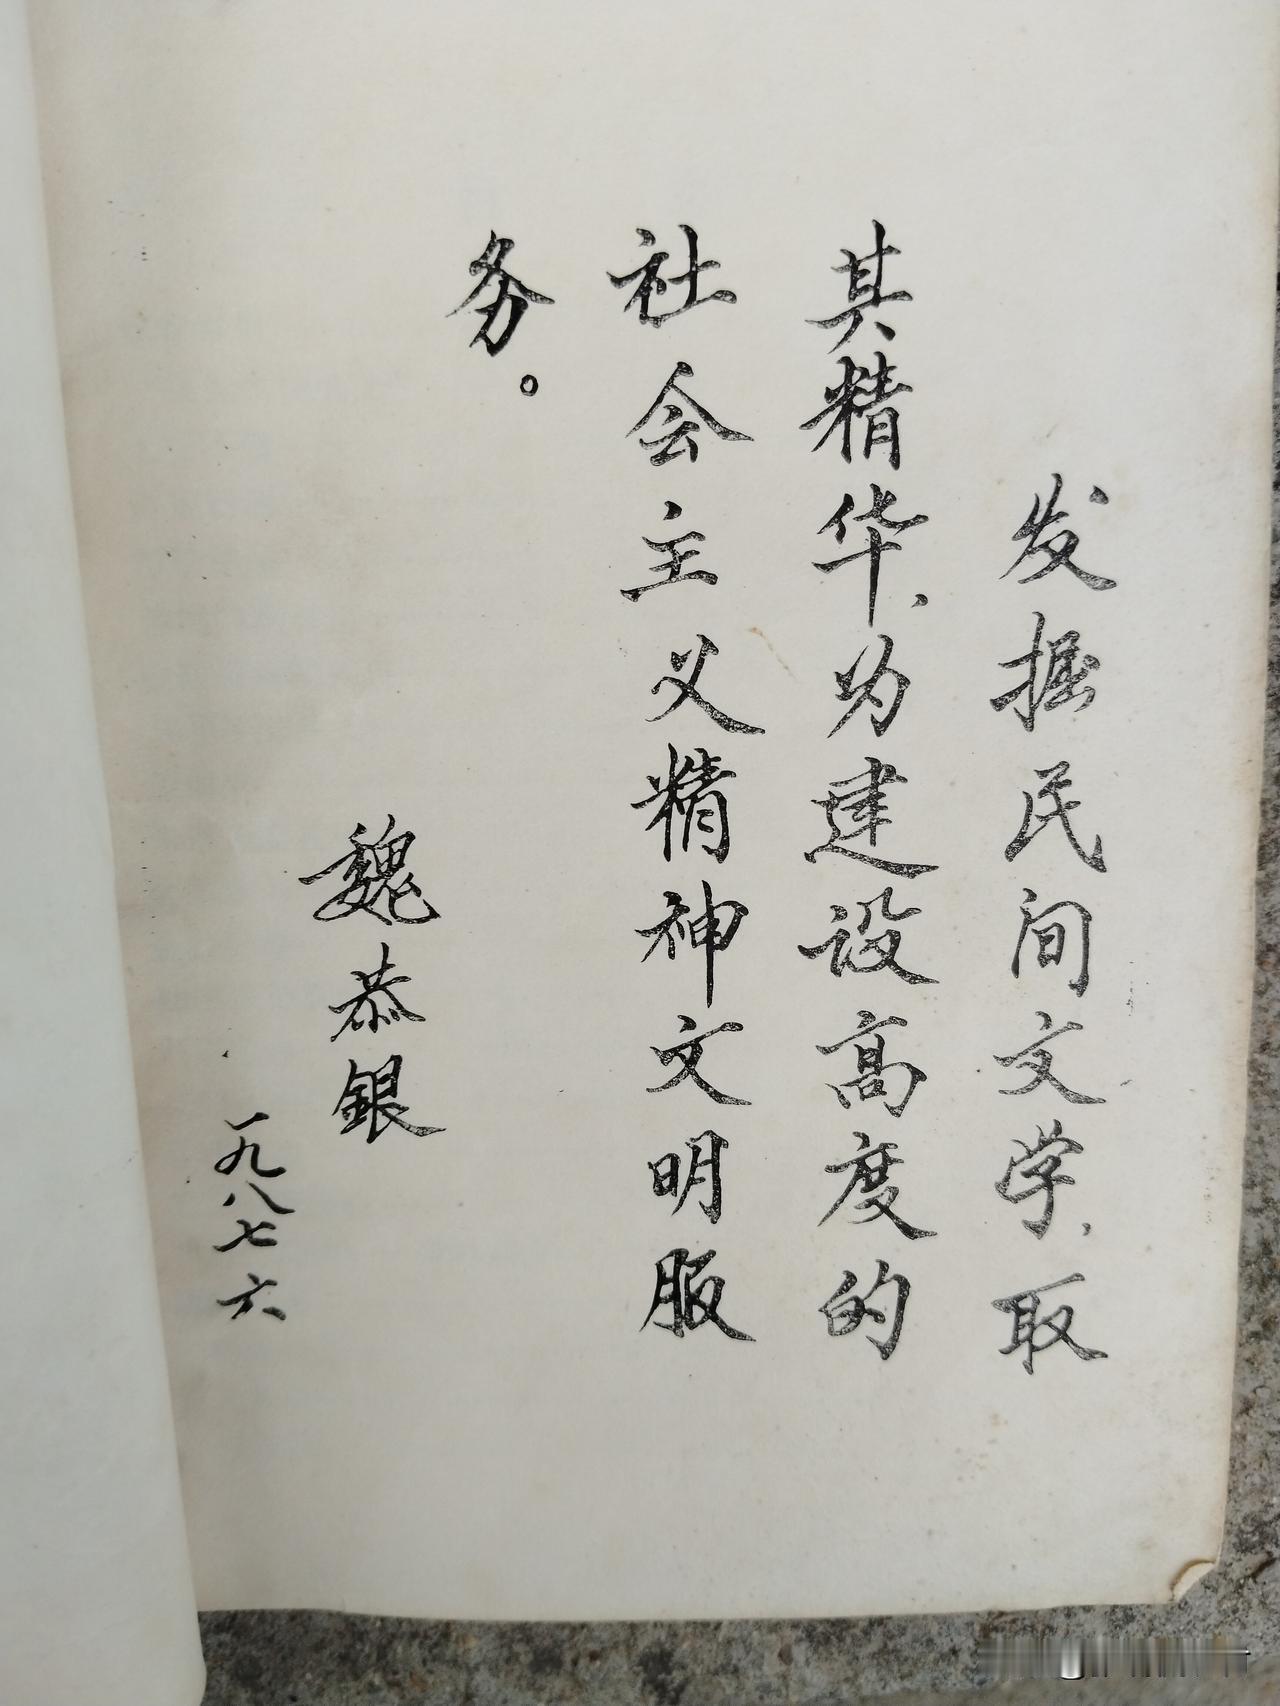 发掘民间文学、取
其精华、为建设高度的
社会主义精神文明服
务。
魏恭銀
一九八七六